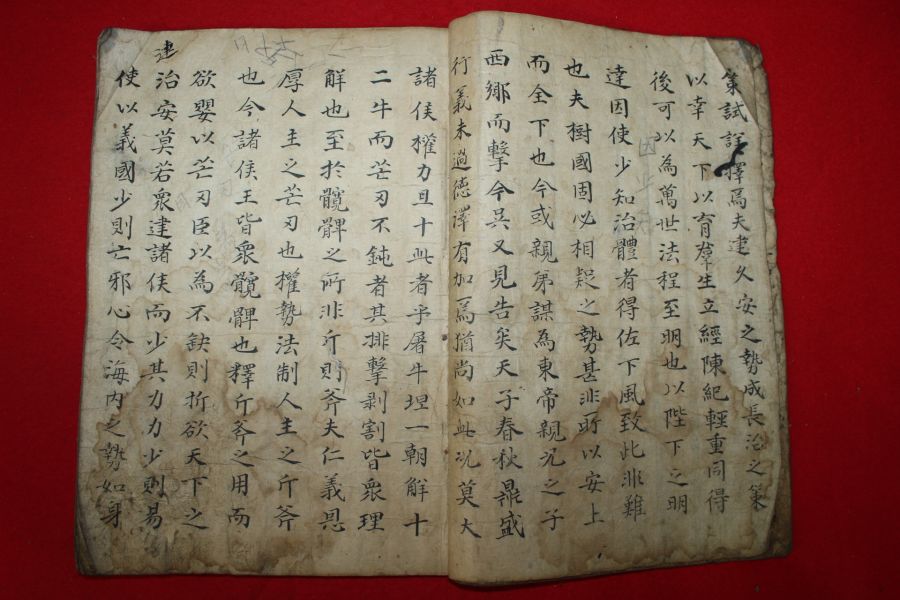 策試詳擇焉夫建久安之勢成長治之策
以幸天下以育羣生立經陳紀輕重同得
後可以為萬世法程至明也以陛下之明
達因使少知治體者得佐下風致此非難
也夫樹國固必相疑之勢甚非所以安上
而全下也今或親弟謀為東帝親兄之子
西鄉而擊今吳又見告矣天子春秋鼎盛
行義未過德澤有加焉猶尚如此況莫大
諸侯權力且十此者乎屠牛坦一朝解十
二牛而芒刃不鈍者其排擊剥割皆衆理
觧也至於髖髀之所非斤則斧夫仁義恩
厚人主之芒刃也權勢法制人主之斤斧
也今諸侯王皆衆髖髀也釋斤斧之用而
欲嬰以芒刃臣以為不缺則折欲天下之
建
治安莫若衆建諸侯而少其力力少則易
使以義國少則亡邪心令海內之勢如身